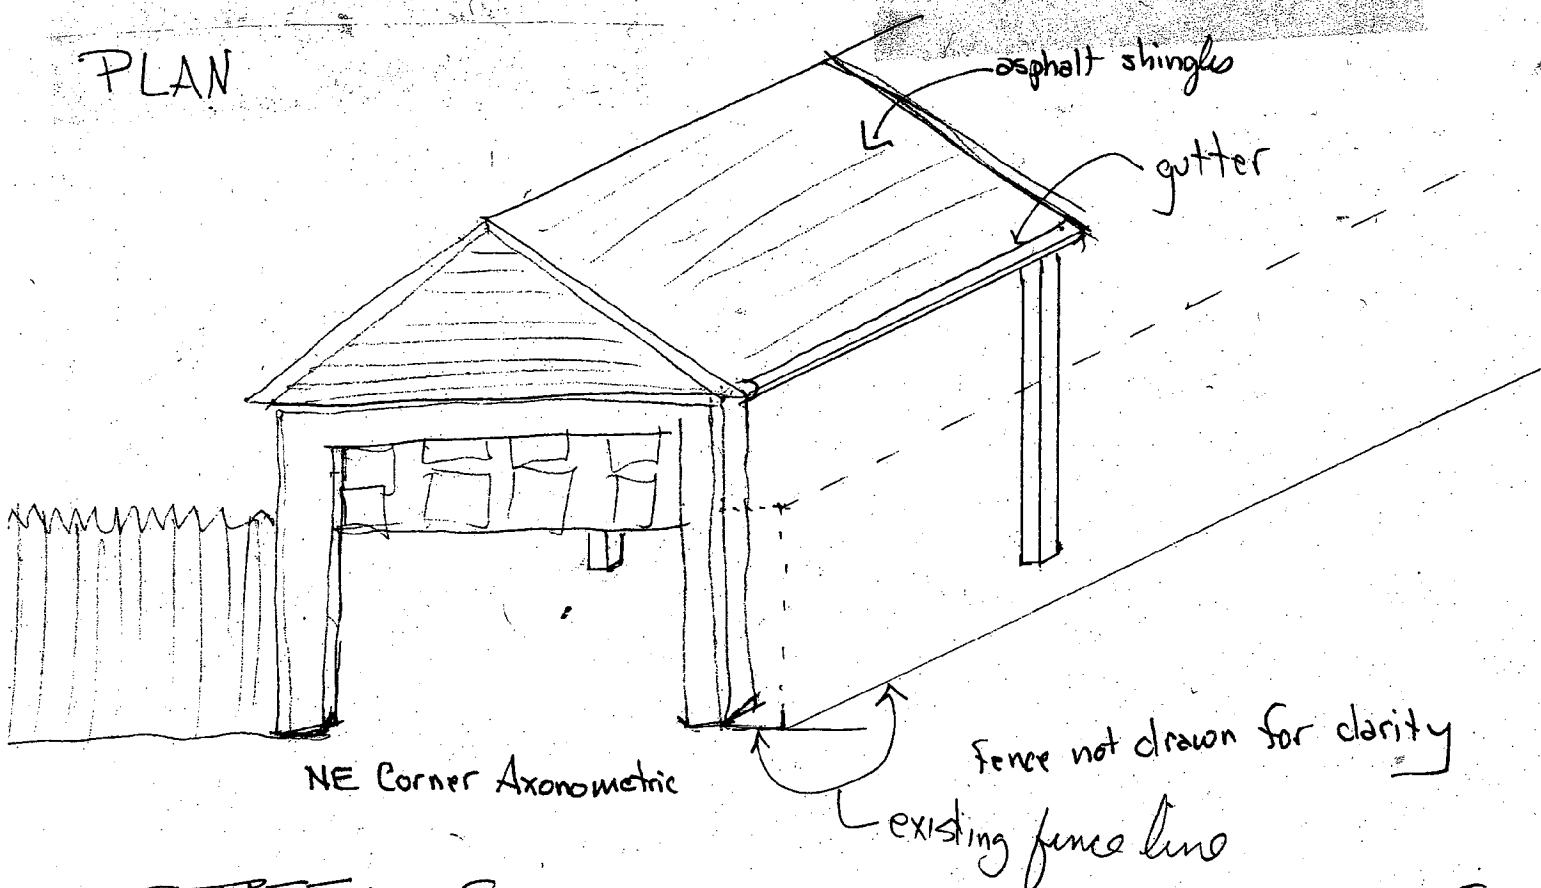 PLAN
asphalt shingles
gutter
NE Corner Axonometric
Fence not drawn for clarity
existing fence line